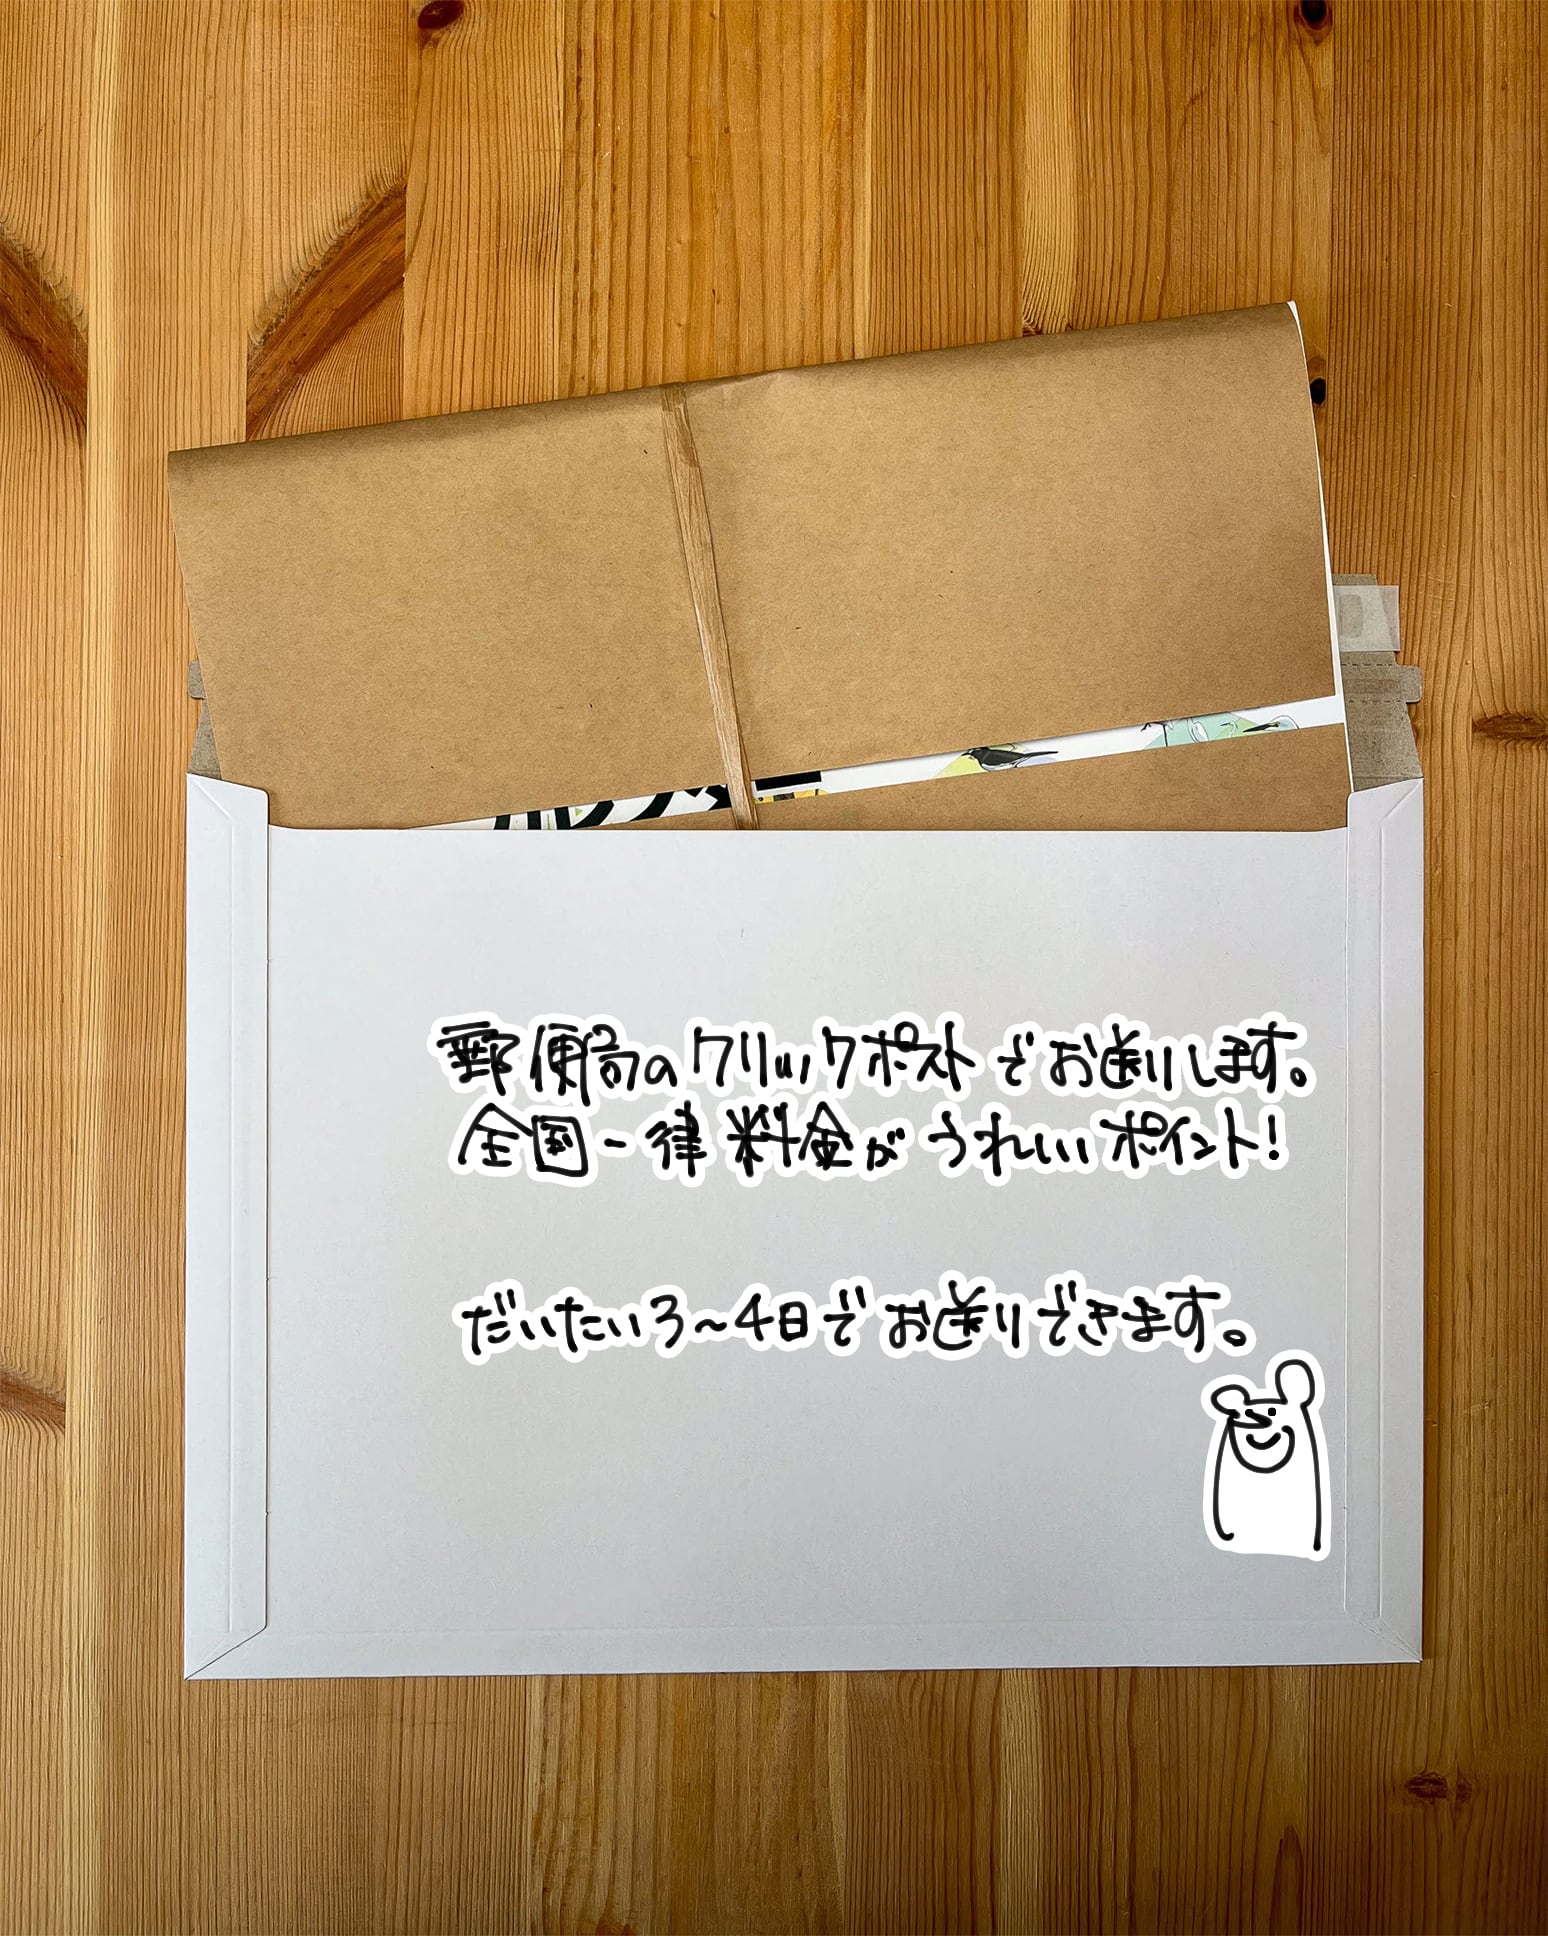 郵便局のクリックポストでお送りします。
全国一律料金がうれしいポイント!
だいたい3~4日でお送りできます。